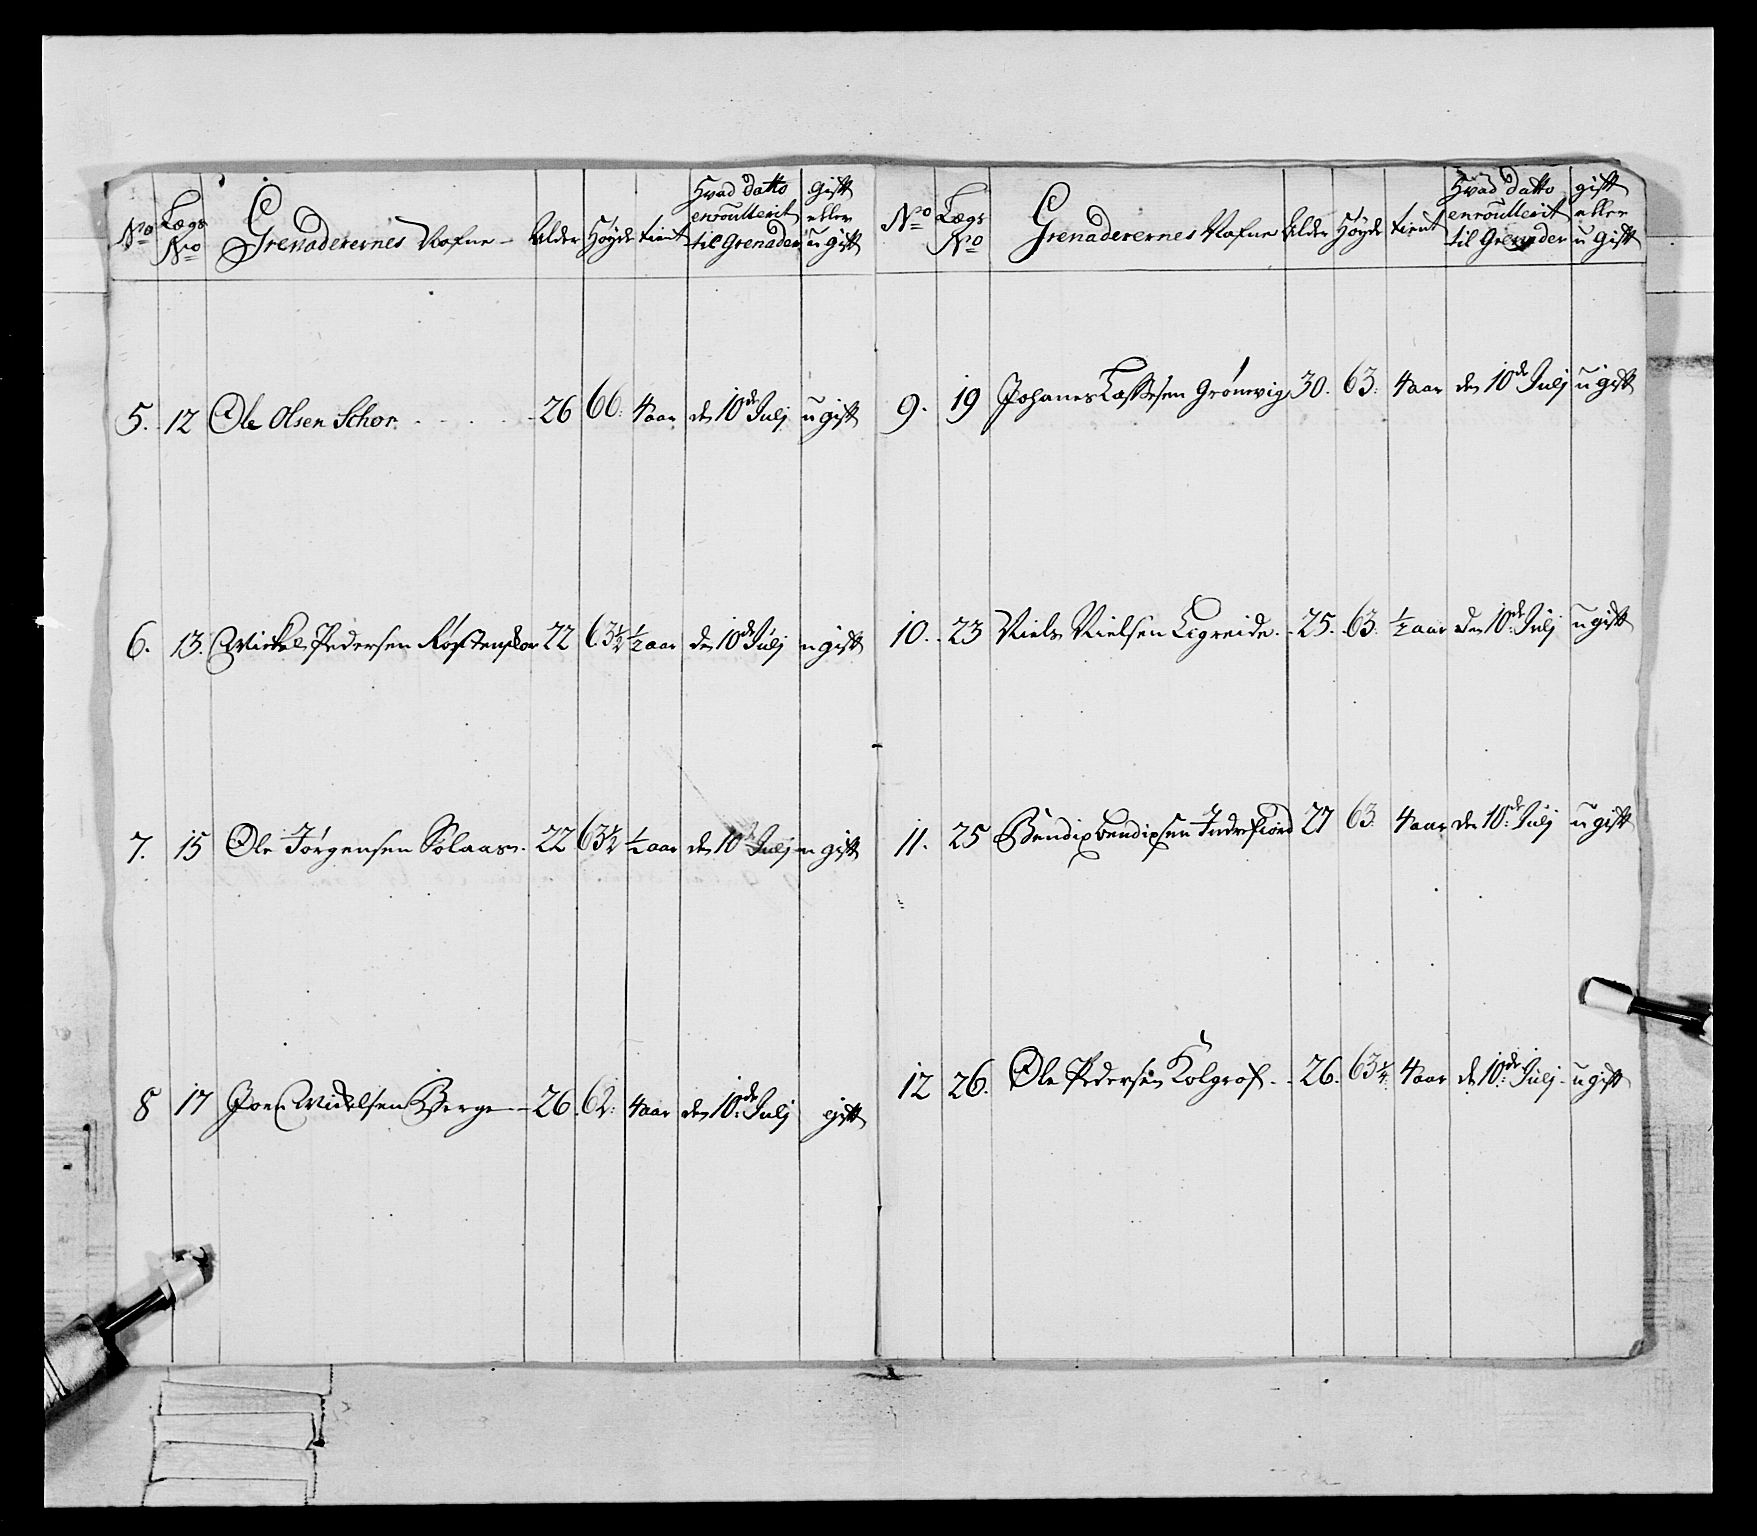 No Lægs No Grenaderernes Nafne Alder Høyde tient Hvad Datto enroullerit til Grenader gift eller ugift
5. 12 Ole Olsen Schor 26 66: 4 aar den 10de Julj ugift
6. 13. Mickel Pedersen 22 63½ ½ aar den 10de Julj ugift
7. 15 Ole Jørgensen Solaas 22 63½ ½ aar den 10de Julj ugift
8 17 Joen Berge 26. 62: 4 aar den 10de Julj gift
No Lægs No Grenaderernes Nafne Alder Høyde tient Hvad Datto enroullerit til Grenader gift eller ugift
9. 19 Johanes Lassesen Grønvig 30. 63: 4 aar den 10de Julj ugift
10. 23 Niels Nielsen Legreide 25. 63. ½ aar den 10de Julj ugift
11. 25 Bendix Bendixsen Indrefiord 27 63. 4 aar den 10de Julj ugift
12 26. Ole Pedersen Kolgrof 26. 63¼ 4 aar den 10de Julj ugift